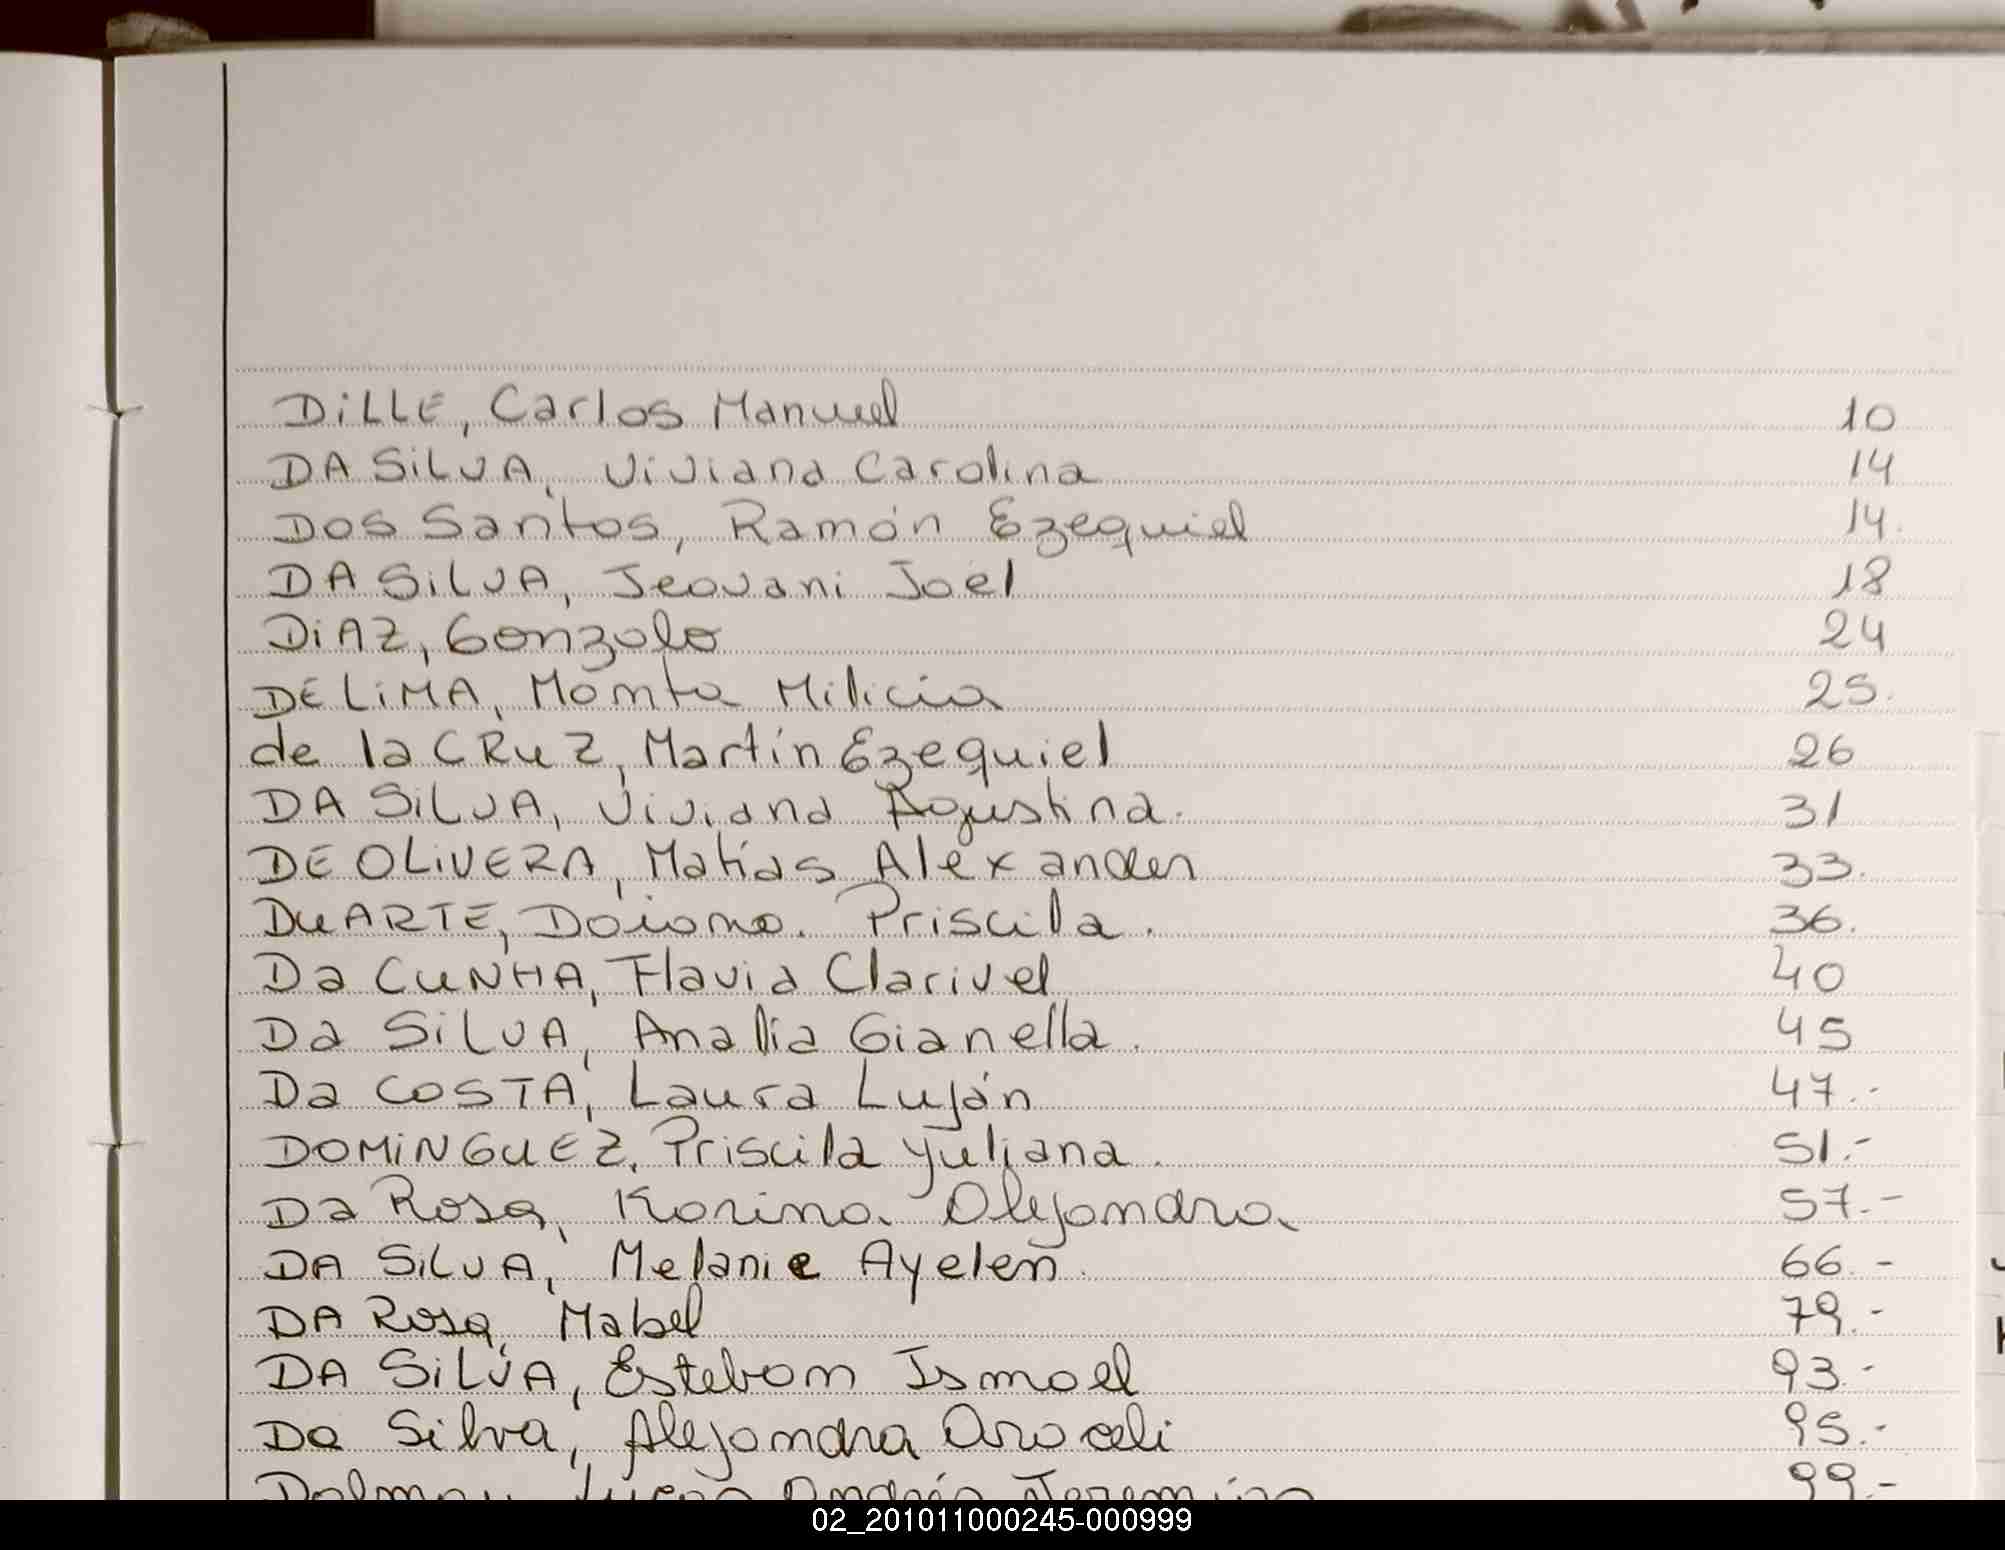 DiLLE, Carlos Manuel 10
DA SiLVA, Viviana Carolina 14
Dos Santos, Ramón Ezequiel 14.
DA SiLVA, Jeovani Joel 18
DiAZ, Gonzalo 24
DE LiMA, Milicia 25.
de la CRUZ, Martín Ezequiel 26
DA SiLVA, Viviana Agustina. 31
DE OLiVERA, Matías Alexander 33.
DuARTE, Daiana Priscila. 36.
Da CuNHA, Flavia Clarivel 40
Da SiLVA, Analia Gianella. 45
Da COSTA, Laura Luján 47.-
DOMiNGuEZ, Priscila Yuliana. 51.-
Da Rosa, Karina Alejandra 57.-
DA SiLVA, Melanie Ayelen. 66.-
DA Rosa, Mabel 79.-
DA SiLVA, Esteban Ismael 93.-
Da Silva, Alejandra Araceli 95.-
Lucas Andrés Jeremías 99.-
02_201011000245-000999